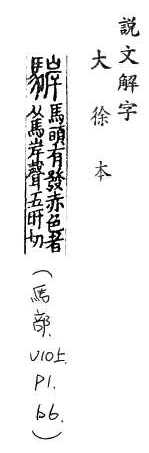 說文解字
大徐本
䮗
馬頭有發赤色者
从馬岸聲五旰切
(馬部.
V10上.
P1.
b6.)